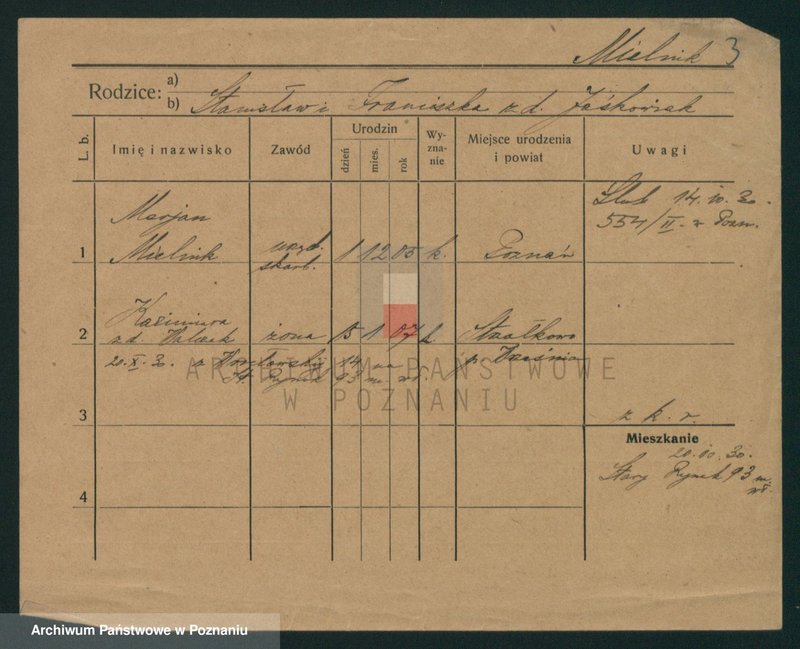 Mielnik 3
Rodzice: a)
b) Stanisław i Franciszka z d. Jaśkowiak
L. b. Imię i nazwisko Zawód Urodzin dzień mies. rok Wy-zna-nie Miejsce urodzenia i powiat Uwagi
Ślub 14.10.30.
554/II. z Pozn.
Marjan
1 Mielnik urzęd. skarb. 1 12 05 k. Poznań
Kazimiera
2 z d. Walczak żona 5 1 07 k Strzałkowo
20.X.30. z 14 na p. Września
St. Rynek 93 m.
ARCHIWUM PAŃSTWOWE
W POZNANIU
3 z k. r.
Mieszkanie
20.10.30.
Stary Rynek 93 m
4
Archiwum Państwowe w Poznaniu